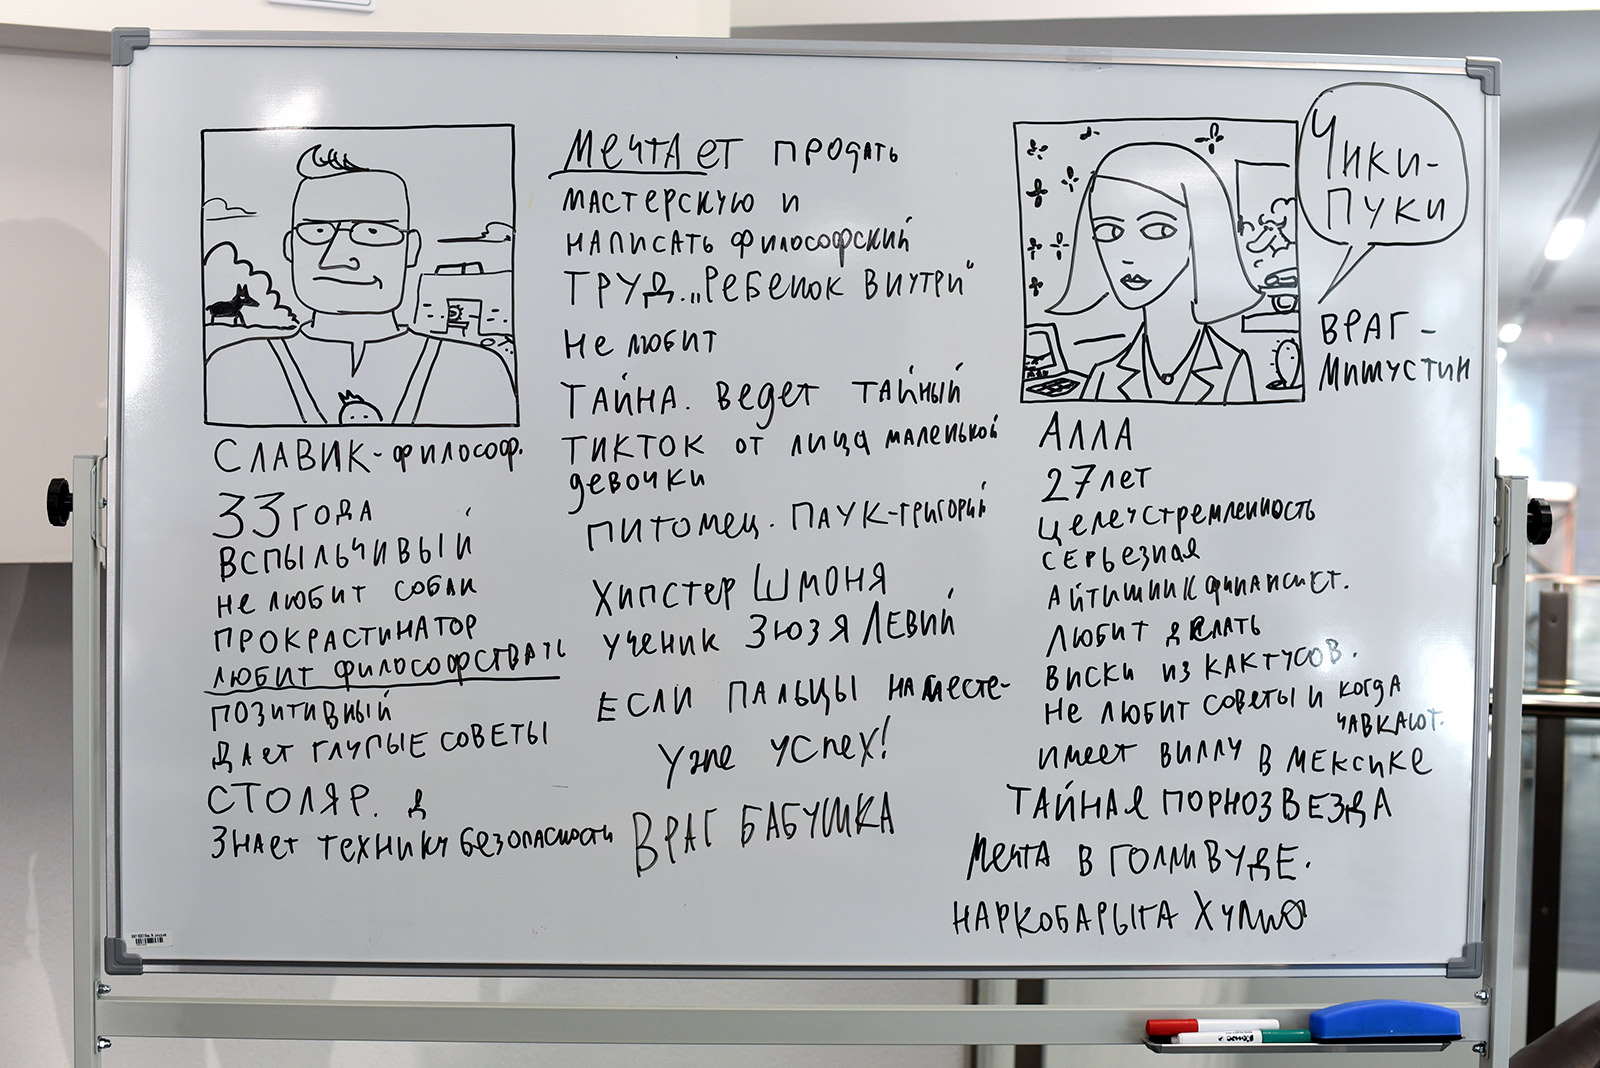 СЛАВИК-философ.
33 ГОДА
ВСПЫЛЬЧИВЫЙ
Не любит собак
ПРОКРАСТИНАТОР
Любит философствать
ПОЗИТИВНЫЙ
ДАет ГЛУПЫЕ СОВЕТЫ
СТОЛЯР. д
Знает технику безопасности
МечтАет продать
мастерскую и
написать философский
ТРУД. „Ребенок внутри"
Не любит
ТАЙНА. Ведет тайный
ТИКТОК от лица маленькой
девочки
ПИТОМец. ПАУК-ГРИГОРИЙ
Хипстер ШМОНЯ
ученик ЗЮЗЯ ЛЕВИЙ
ЕСЛИ ПАЛЬЦЫ НА Месте-
уже успех!
ВРАГ БАБУШКА
Чики-
ПУКИ
ВРАГ-
Мишустин
АЛЛА
27 лет
Целеустремленность
серьезная
Айтишник финансист.
Любит делать
виски из кактусов.
Не любит советы и когда
чавкают.
имеет виллу в Мексике
ТАЙНАЯ ПОРНОЗВЕЗДА
Мечта в Голливуде.
НАРКОБАРЫГА Хулио